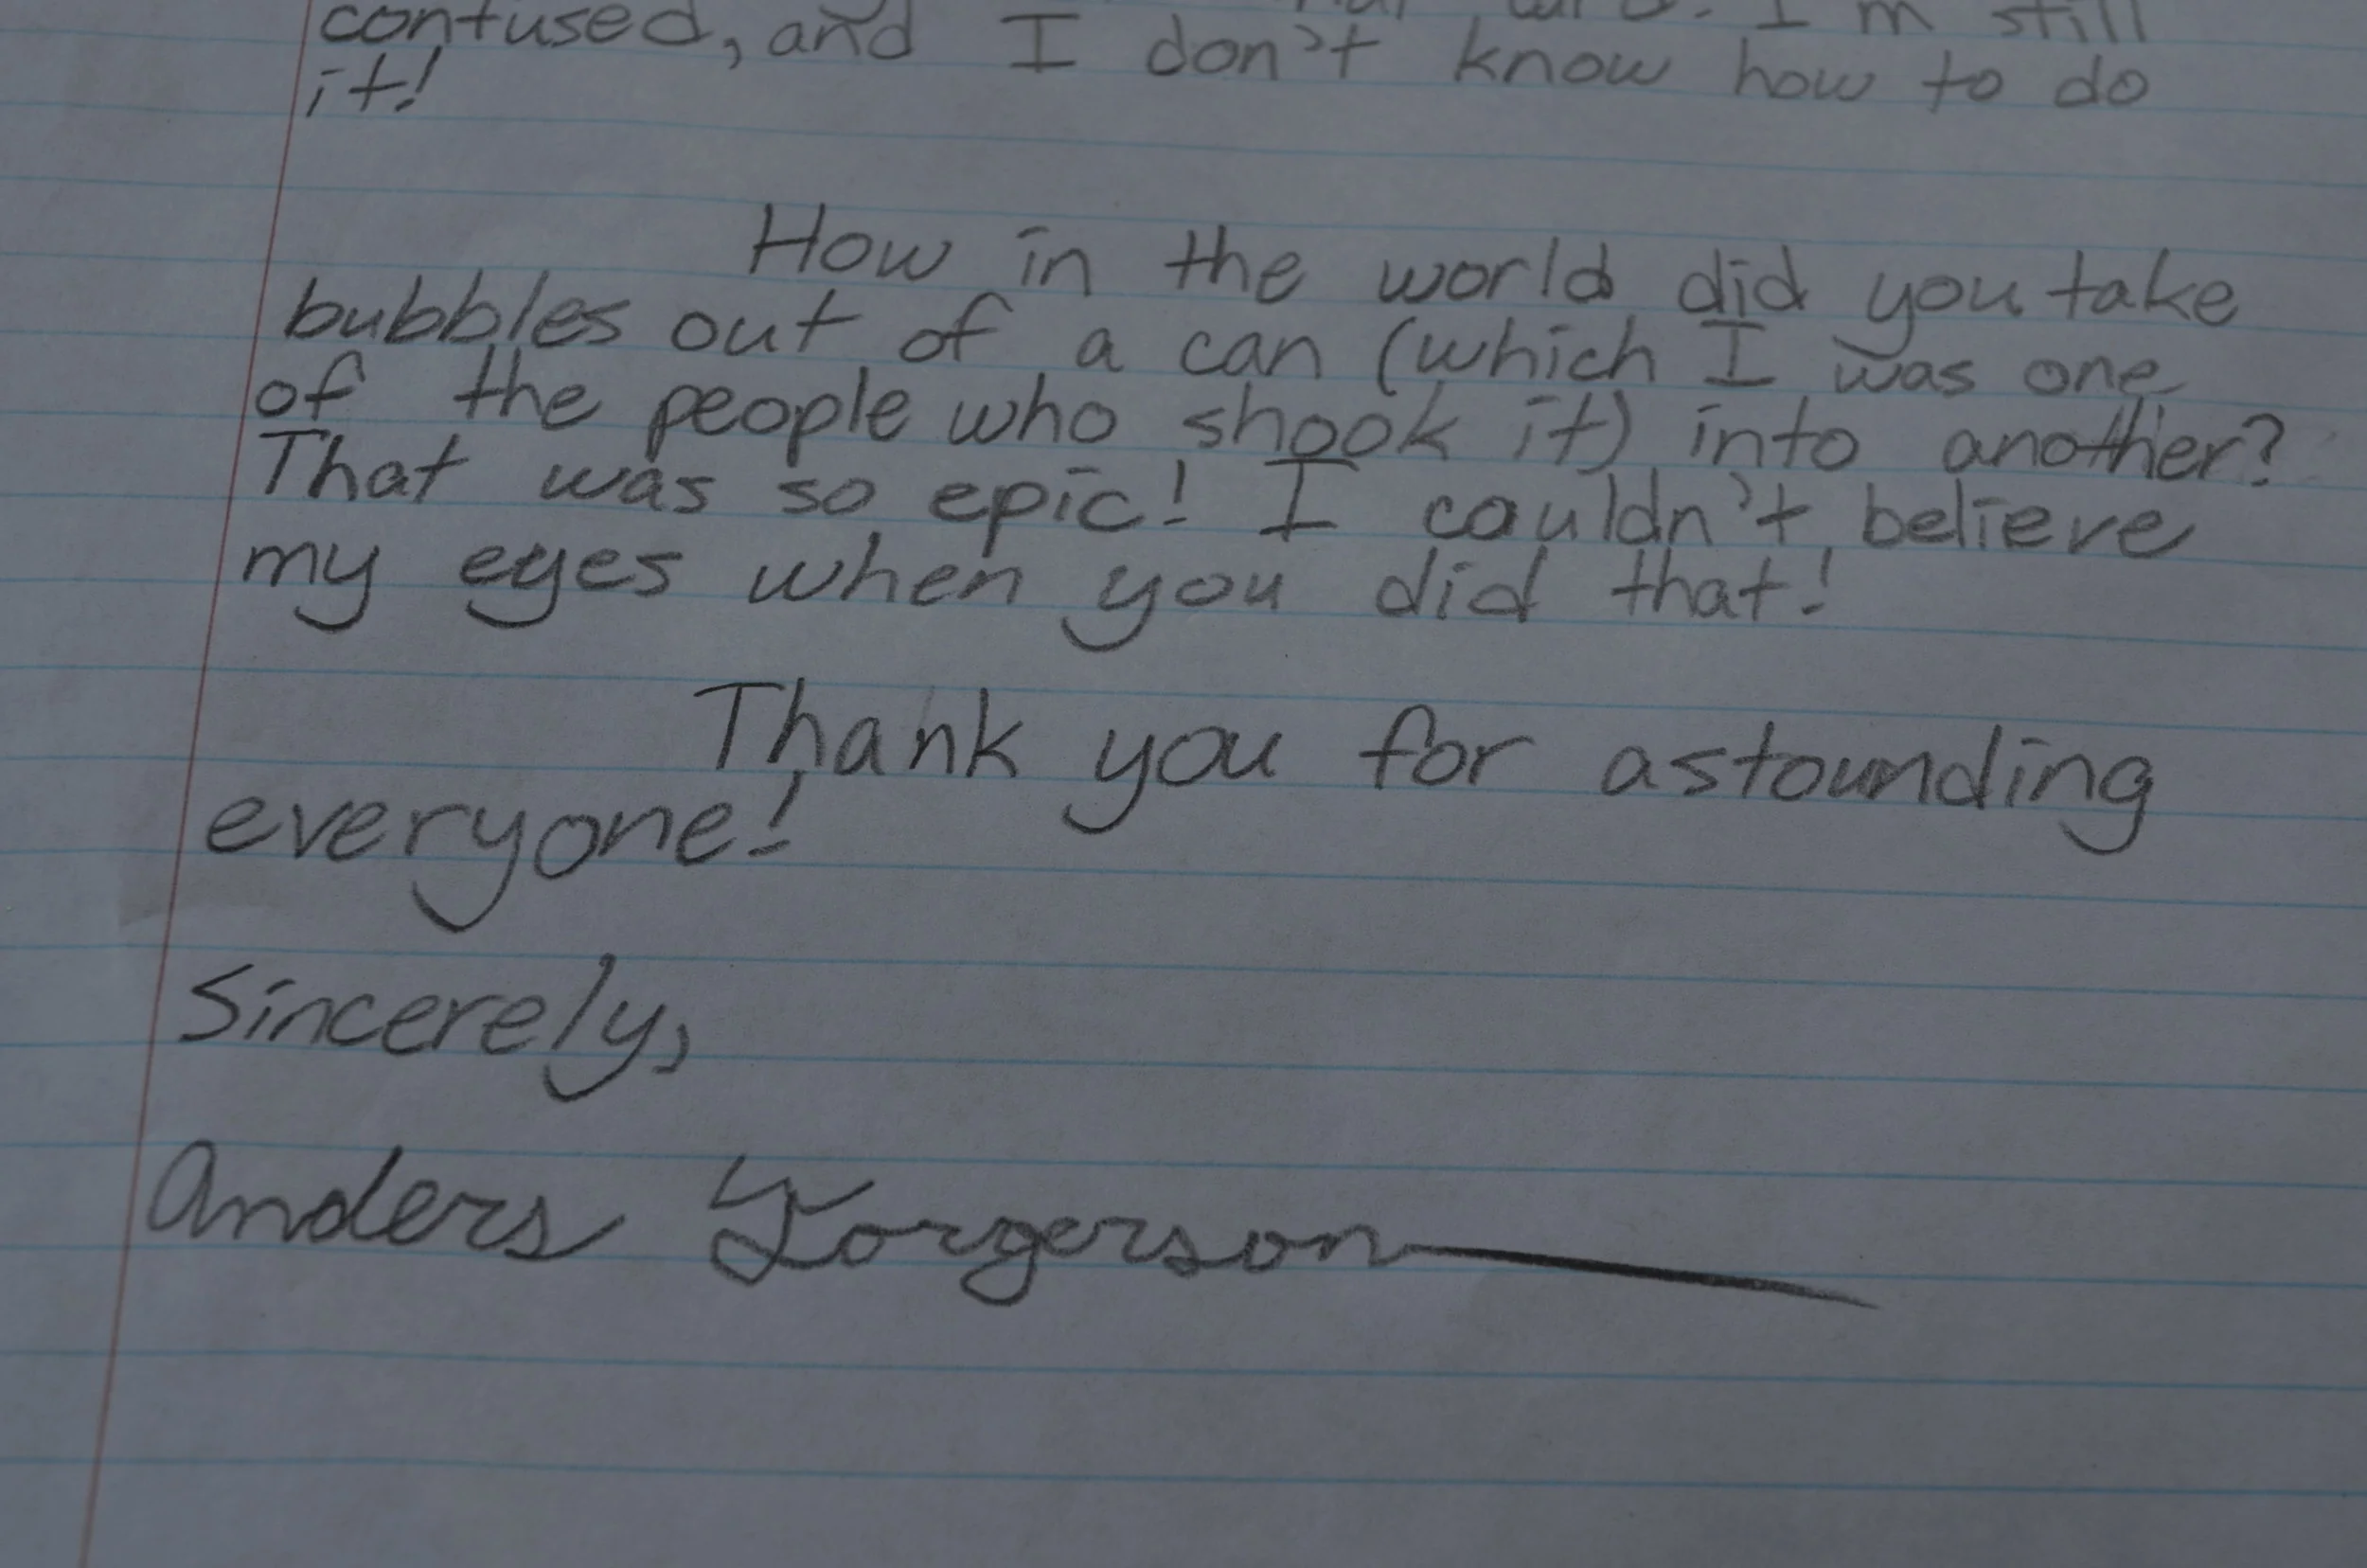 I'm still
confused, and I don't know how to do
it!
How in the world did you take
bubbles out of a can (which I was one
of the people who shook it) into another?
That was so epic! I couldn't believe
my eyes when you did that!
Thank you for astounding
everyone!
Sincerely,
Anders Torgerson